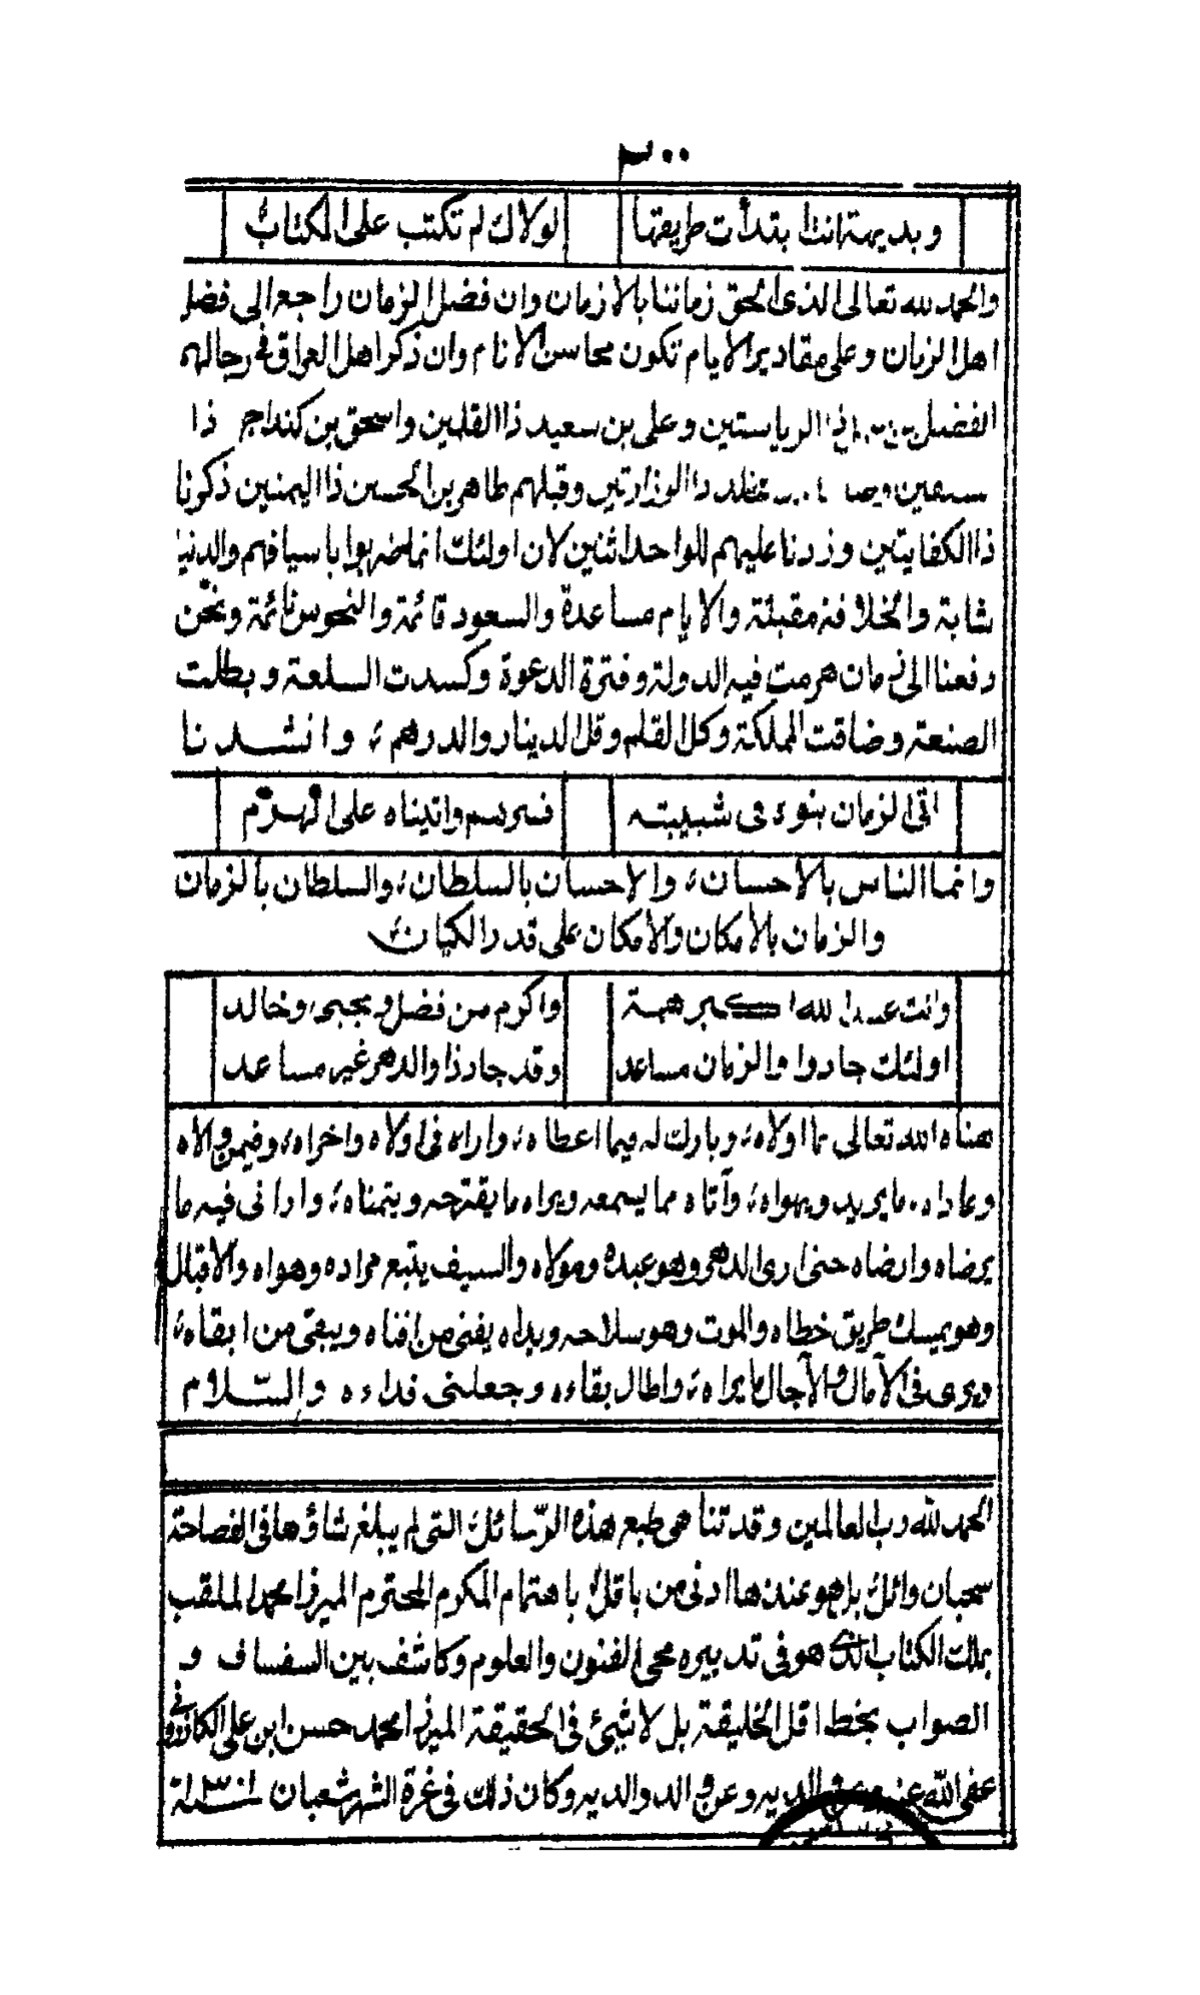 ٢٠٠
وبديهة انت ابتدأت طريقها لولاك لم تكتب على الكتاب
والحمد لله تعالى الذى الحق زماننا بالازمان وان فضل الزمان راجع الى فضل
اهل الزمان وعلى مقادير الايام تكون محاسن الانام وان ذكر اهل العراق فى رجالهم
الفضل بن ذا الرياستين وعلى بن سعيد ذا القلمين واسحق بن كنداج ذا
مخلد ذا الوزارتين وقبلهم طاهر بن الحسين ذا اليمنين ذكرنا
ذا الكفايتين وزدنا عليهم للواحد اثنين لان اولئك انما ضربوا باسيافهم والدنيا
شابة والخلافة مقبلة والايام مساعدة والسعود قائمة والنحوس نائمة ونحن
دفعنا الى زمان هرمت فيه الدولة وفترة الدعوة وكسدت السلعة وبطلت
الصنعة وضاقت المملكة وكل القلم وقل الدينار والدرهم، وانشدنا
اتى الزمان بنوه فى شبيبته فسرهم واتيناه على الهرم
وانما الناس بالاحسان، والاحسان بالسلطان، والسلطان بالزمان
والزمان بالأمكان والامكان على قدر الكيان،
وانت عبيد الله اكبر همة واكرم من فضل ويحيى وخالد
اولئك جادوا والزمان مساعد وقد جاد ذا والدهر غير مساعد
هناه الله تعالى بما اولاه، وبارك له فيما اعطاه، واراه فى اولاه واخراه، وفيمن والاه
وعاداه، ما يريد ويهواه، وآتاه مما يسمعه ويراه ما يقترحه ويتمناه، وارانى فيه ما
يرضاه وارضاه حتى ارى الدهر وهو عبده ومولاه والسيف يتبع مراده وهواه والاقبال
وهو يمسك طريق خطاه والموت وهو سلاحه ويداه يفنى من افناه ويبقى من ابقاه،
ويرى فى الآمال والآجال ما يراه، واطال بقاءه وجعلنى فداءه والسّلام
الحمد لله رب العالمين وقد تناهى طبع هذه الرّسائل التى لم يبلغ شاؤها فى الفصاحة
سحبان وائل بل هو عندها ادنى من باقل باهتمام المكرم المحترم الميرزا محمد الملقب
بملك الكتاب الذى هو فى تدبيره محى الفنون والعلوم وكاشف بين السفساف و
الصواب بخط اقل الخليقة بل لا شيئ فى الحقيقة الميرزا محمد حسن ابن على الكازرونى
عفى الله عنه وعن والديه وعن والد والديه وكان ذلك فى غرة الشهر شعبان سنة